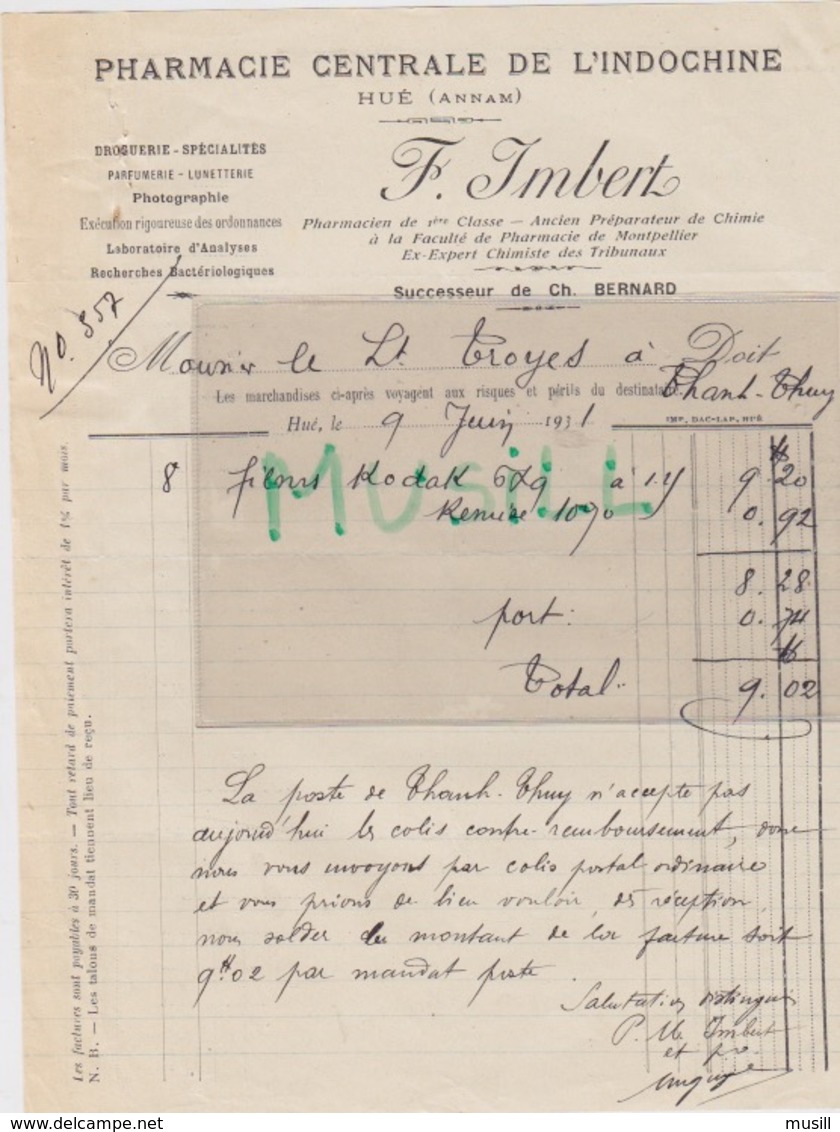 PHARMACIE CENTRALE DE L'INDOCHINE
HUÉ (ANNAM)
DROGUERIE - SPÉCIALITÉS
PARFUMERIE - LUNETTERIE
Photographie
Exécution rigoureuse des ordonnances
Laboratoire d'Analyses
Recherches Bactériologiques
F. Imbert
Pharmacien de 1ère Classe — Ancien Préparateur de Chimie
à la Faculté de Pharmacie de Montpellier
Ex-Expert Chimiste des Tribunaux
Successeur de Ch. BERNARD
No. 357
Monsieur le Lt Troyes à Doit
Thanh-Thuy
Les marchandises ci-après voyagent aux risques et périls du destinataire.
Hué, le 9 Juin 1931
IMP. DAC-LAP, HUÉ
8 films Kodak 6x9 à 1.15 9.20
Remise 10% 0.92
8.28
port: 0.74
Total 9.02
MUSILL
La poste de Thanh-Thuy n'accepte pas
aujourd'hui les colis contre-remboursement, donc
nous vous envoyons par colis postal ordinaire
et vous prions de bien vouloir, dès réception,
nous solder le montant de la facture soit
9$02 par mandat poste.
Salutations distinguées
P. M. Imbert
et po.
Les factures sont payables à 30 jours. — Tout retard de paiement portera intérêt de 1% par mois.
N. B. — Les talons de mandat tiennent lieu de reçu.
musill